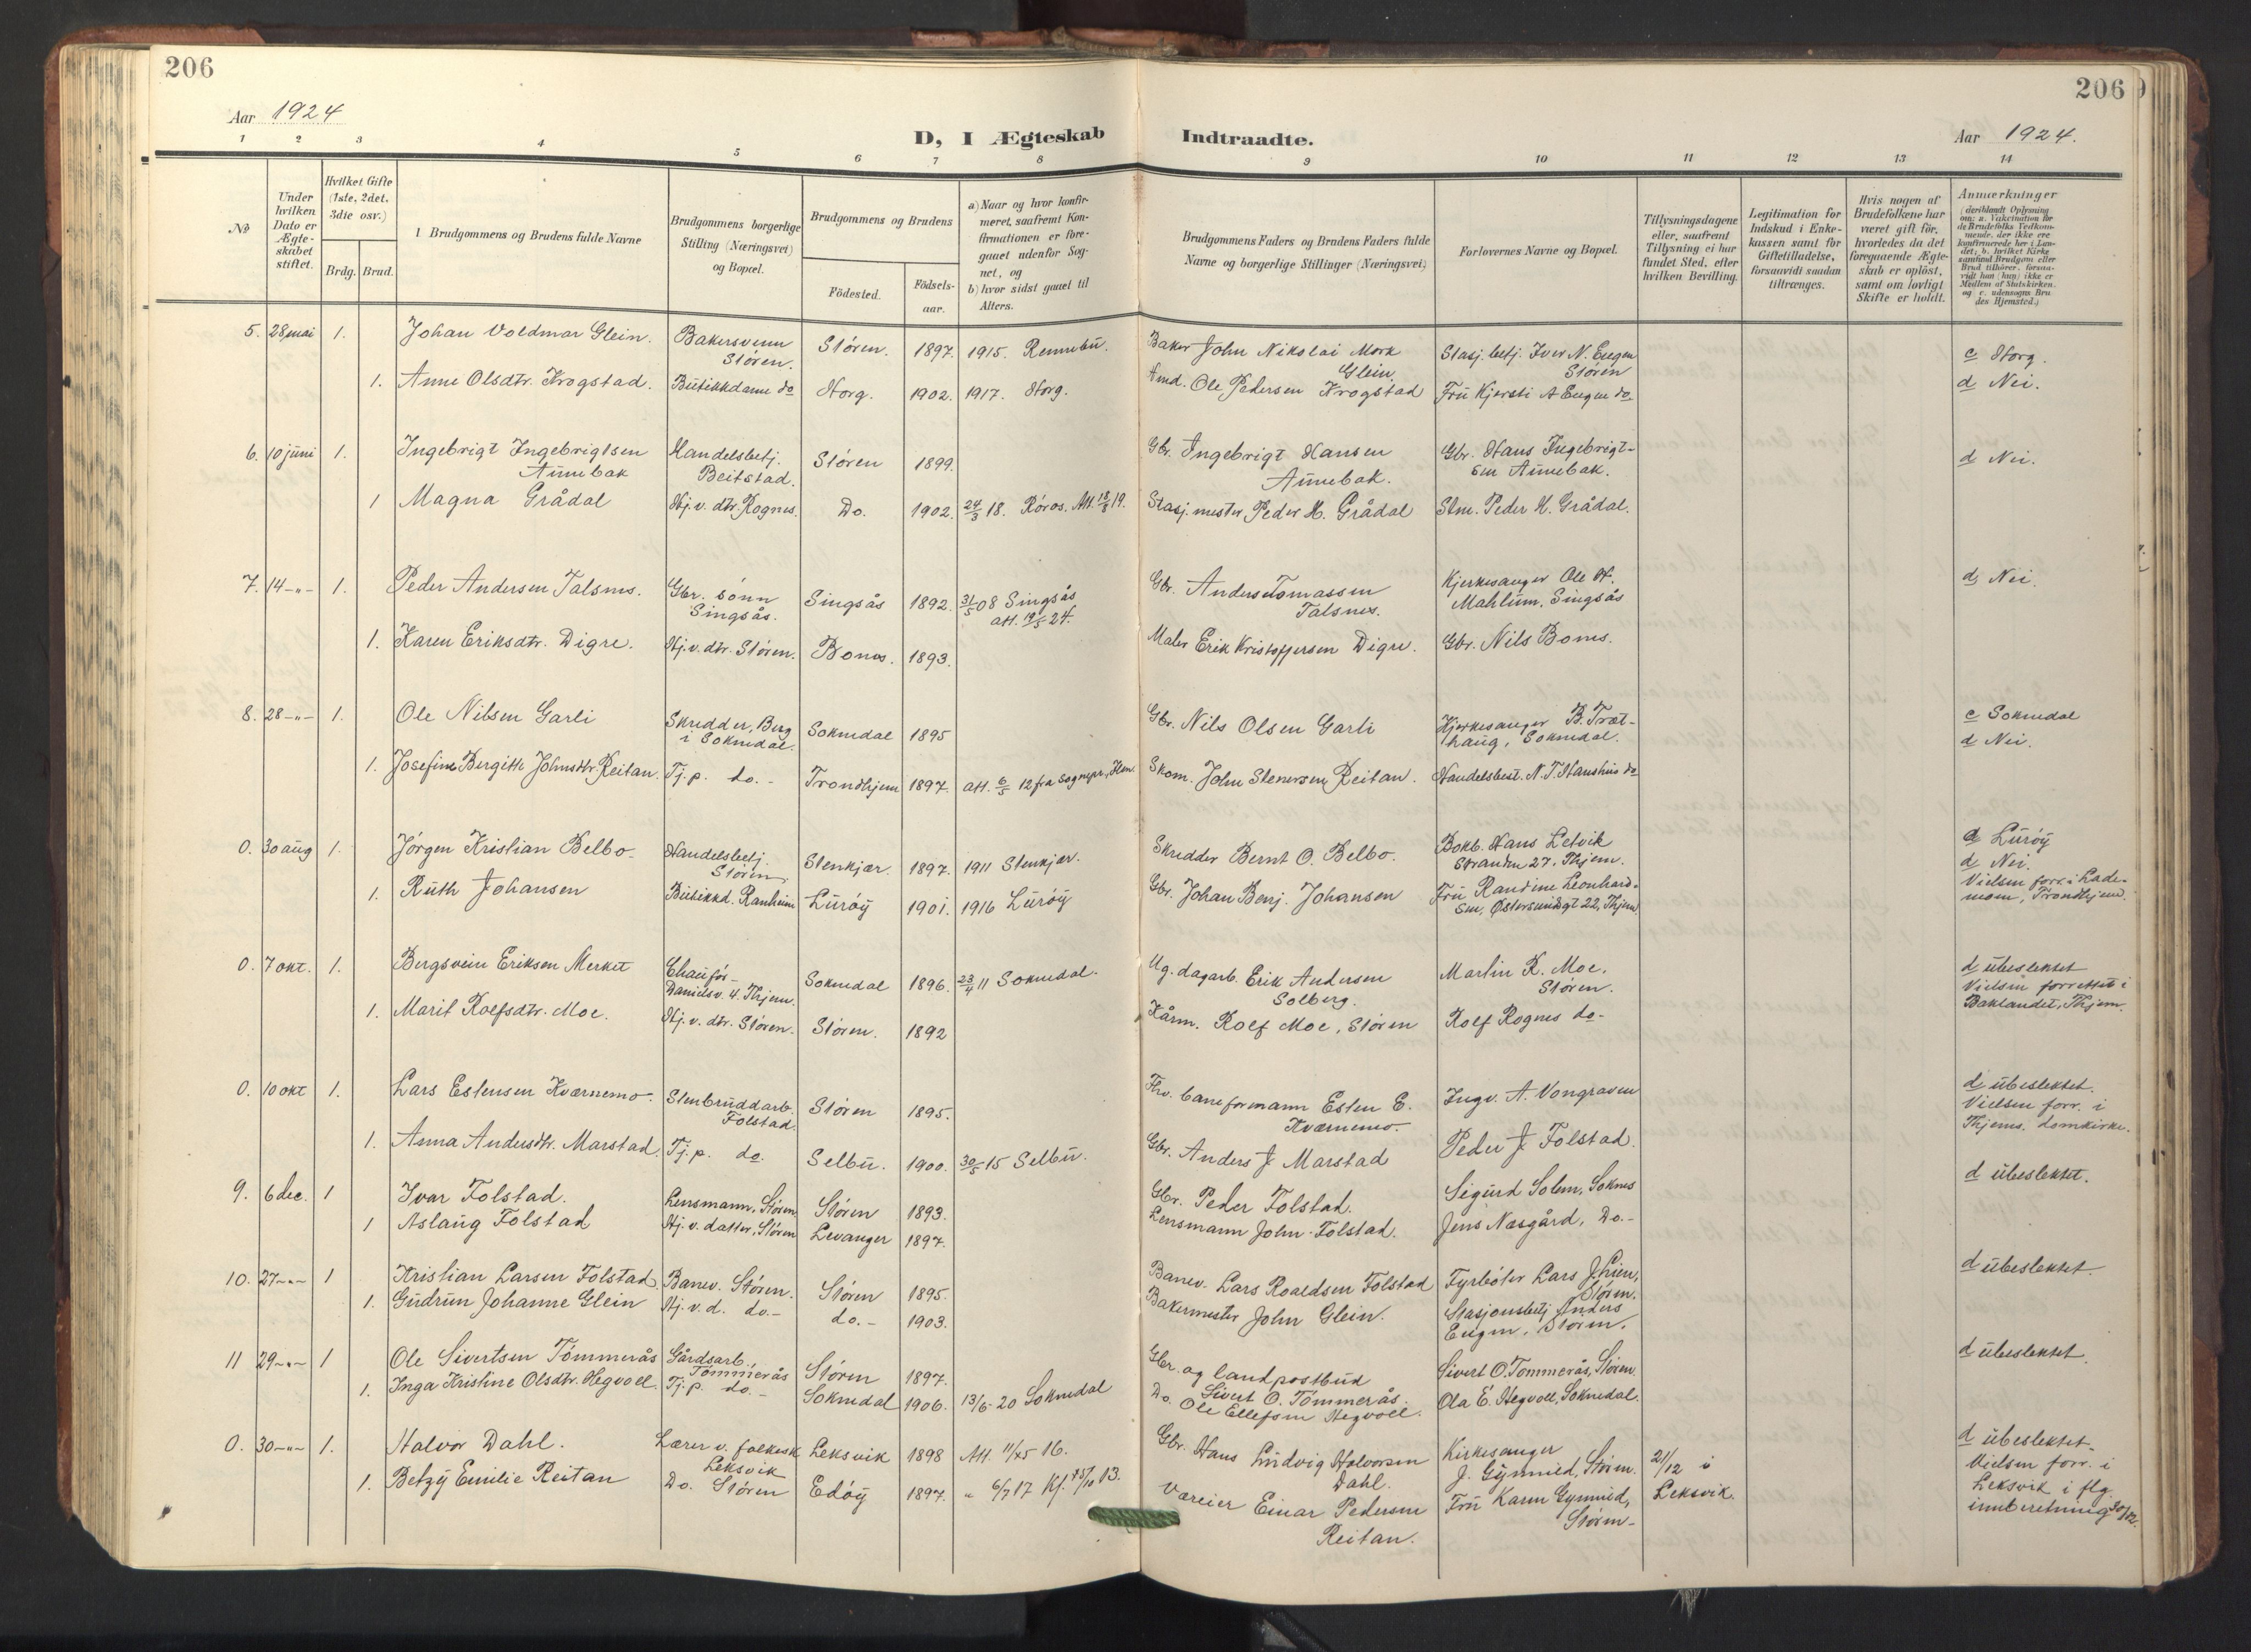 206
206
Aar 1924
D, I Ægteskab Indtraadte.
Aar 1924.
1 2 3 4 5 6 7 8 9 10 11 12 13 14
No
Under hvilken Dato er Ægteskabet stiftet.
Hvilket Gifte (1ste, 2det, 3die osv.)
Brdg. Brud.
Brudgommens og Brudens fulde Navne
Brudgommens borgerlige Stilling (Næringsvei) og Bopæl.
Brudgommens og Brudens
Födested.
Födsels-aar.
a) Naar og hvor konfirmeret, saafremt Konfirmationen er foregaaet udenfor Sognet, og
b) hvor sidst gaaet til Alters.
Brudgommens Faders og Brudens Faders fulde Navne og borgerlige Stillinger (Næringsvei)
Forlovernes Navne og Bopæl.
Tillysningsdagene eller, saafremt Tillysning ei har fundet Sted, efter hvilken Bevilling.
Legitimation for Indskud i Enkekassen samt for Giftetilladelse, forsaavidt saadan tiltrænges.
Hvis nogen af Brudefolkene har været gift för, hvorledes da det foregaaende Ægteskab er oplöst, samt om lovligt Skifte er holdt.
Anmærkninger
(deriblandt Oplysning om: a. Vakcination for de Brudefolks Vedkommende, der ikke ere konfirmerede her i Landet; b. hvilket Kirkesamfund Brudgom eller Brud tilhörer, forsaavidt han (hun) ikke er Medlem af Statskirken, og c. udensogns Brudes Hjemsted.)
5. 28 mai 1. Johan Voldmar Glein. Bakersvenn Støren. Støren. 1897. 1915. Rennebu. Baker John Nikolai Mork Glein Stasj. betj. Iver N. Eugen Støren c Horg.
1. Anne Olsdtr. Krogstad. Butikkdame do Horg. 1902. 1917. Horg. Ole Pedersen Krogstad Fru Kjersti A Eugen do. d Nei.
6. 10 juni 1. Ingebrigt Ingebrigtsen Aunebak Handelsbetj. Beitstad. Støren 1899. Gbr. Ingebrigt Hansen Aunebak. Gbr. Hans Ingebrigtsen Aunebak. d Nei.
1 Magna Grådal Hj. v. dtr. Rognes. Do. 1902. 24/3 18. Røros. Att. 18/3 19. Stasj. mester Peder H. Grådal Stm. Peder H. Grådal.
7. 14 -"- 1. Peder Andersen Talsnes. Gbr. sønn Singsås. Singsås 1892. 31/5 08 Singsås att. 19/5 24. Gbr. Anders Tomassen Talsnes. Kjerkesanger Ole H. Mahlum, Singsås d, Nei.
1. Karen Eriksdtr. Digre. Hj. v. dtr. Støren. Bones. 1893. Maler Erik Kristoffersen Digre. Gbr. Nils Bones.
8. 28 -"- 1. Ole Nilsen Garli Skredder, Berg i Soknedal. Soknedal 1895 Gbr. Nils Olsen Garli Kjerkesanger B. Træthaug, Soknedal. c Soknedal d Nei.
1. Josefine Bergitte Johnsdtr. Reitan. Tj. p. do. - Trondhjem 1897. att. 6/5 12 fra sognepr., Skom. John Stenersen Reitan. Handelsbest. N. T. Haushus do
0. 30 aug 1. Jørgen Kristian Belbo. Handelsbetj. Støren. Stenkjær. 1897. 1911 Stenkjær. Skredder Bernt O. Belbo. Bokb. Hans Letvik Stranden 27, Thjem. c Lurøy d Nei.
1. Ruth Johansen Butikkd. Ranheim Lurøy 1901. 1916 Lurøy Gbr. Johan Benj. Johansen Fru Randine Leonhardsen, Østersundsgt 22, Thjem Vielsen forr. i Lademoen, Trondhjem.
0. 7 okt. 1. Bergsvein Eriksen Merket Chaufør - Danielsv. 4. Thjem. Soknedal 1896. 23/4 11 Soknedal. Ug. dagarb. Erik Andersen Solberg. Martin R. Moe, Støren. d ubeslektet Vielsen forrettet i Baklandet, Thjem.
1. Marit Rolfsdtr. Moe. Hj. v. dtr. Støren. Støren. 1892 Kårm. Rolf Moe, Støren Rolf Rognes do-
0. 10 okt 1. Lars Estensen Kværnemo. Stenbruddarb. Folstad. Støren 1895. Fhv. baneformann Esten E. Kværnemo. Ingv. A. Vongraven d ubeslektet. Vielsen forr. i Thjems. domkirke.
1. Anna Andersdtr. Marstad. Tj. p. do. Selbu. 1900. 30/5 15 Selbu. Gbr. Anders J. Marstad Peder J. Folstad.
9. 6 dec. 1 Ivar Folstad. Lensmann, Støren Støren 1893. Gbr. Peder Folstad. Sigurd Solem, Soknes d ubeslektet.
1 Aslaug Folstad Hj. v. datter, Støren Levanger 1897. Lensmann John Folstad. Jens Næsgård, Do.-
10. 27 -"- 1 Kristian Larsen Folstad. Banev. Støren. Støren 1895. Banev. Lars Roaldsen Folstad Fyrbøter Lars J. Lien, Støren. d ubeslektet.
1. Gudrun Johanne Glein Hj. v. d. do.- do.- 1903. Bakermester John Glein. Stasjonsbetj. Anders Eugen, Støren.
11 29 -"- 1 Ole Sivertsen Tømmerås Gårdsarb. Tømmerås Støren 1897. Gbr. og landpostbud Sivert O. Tømmerås. Sivert O. Tømmerås, Støren d ubeslektet.
1. Inga Kristine Olsdtr. Hegvoll. Tj. p. do. - Soknedal 1906. 13/6 - 20 Soknedal Do. Ole Ellefsen Hegvoll. Ola E. Hegvoll, Soknedal.
0. 30 -"- 1. Halvor Dahl. Lærer v. folkesk Leksvik Leksvik 1898 Att. 11/5 16. Gbr. Hans Ludvig Halvorsen Dahl. Kirkesanger J. Gynnild, Støren. 21/12 i Leksvik. d ubeslektet.
1. Betzy Emilie Reitan Do. Støren Edøy 1897. " 6/7 17 Kf. 13. Væreier Einar Pedersen Reitan. Fru Karen Gynnild, Støren - Vielsen forr. i Leksvik i flg. innberetning 30/12.